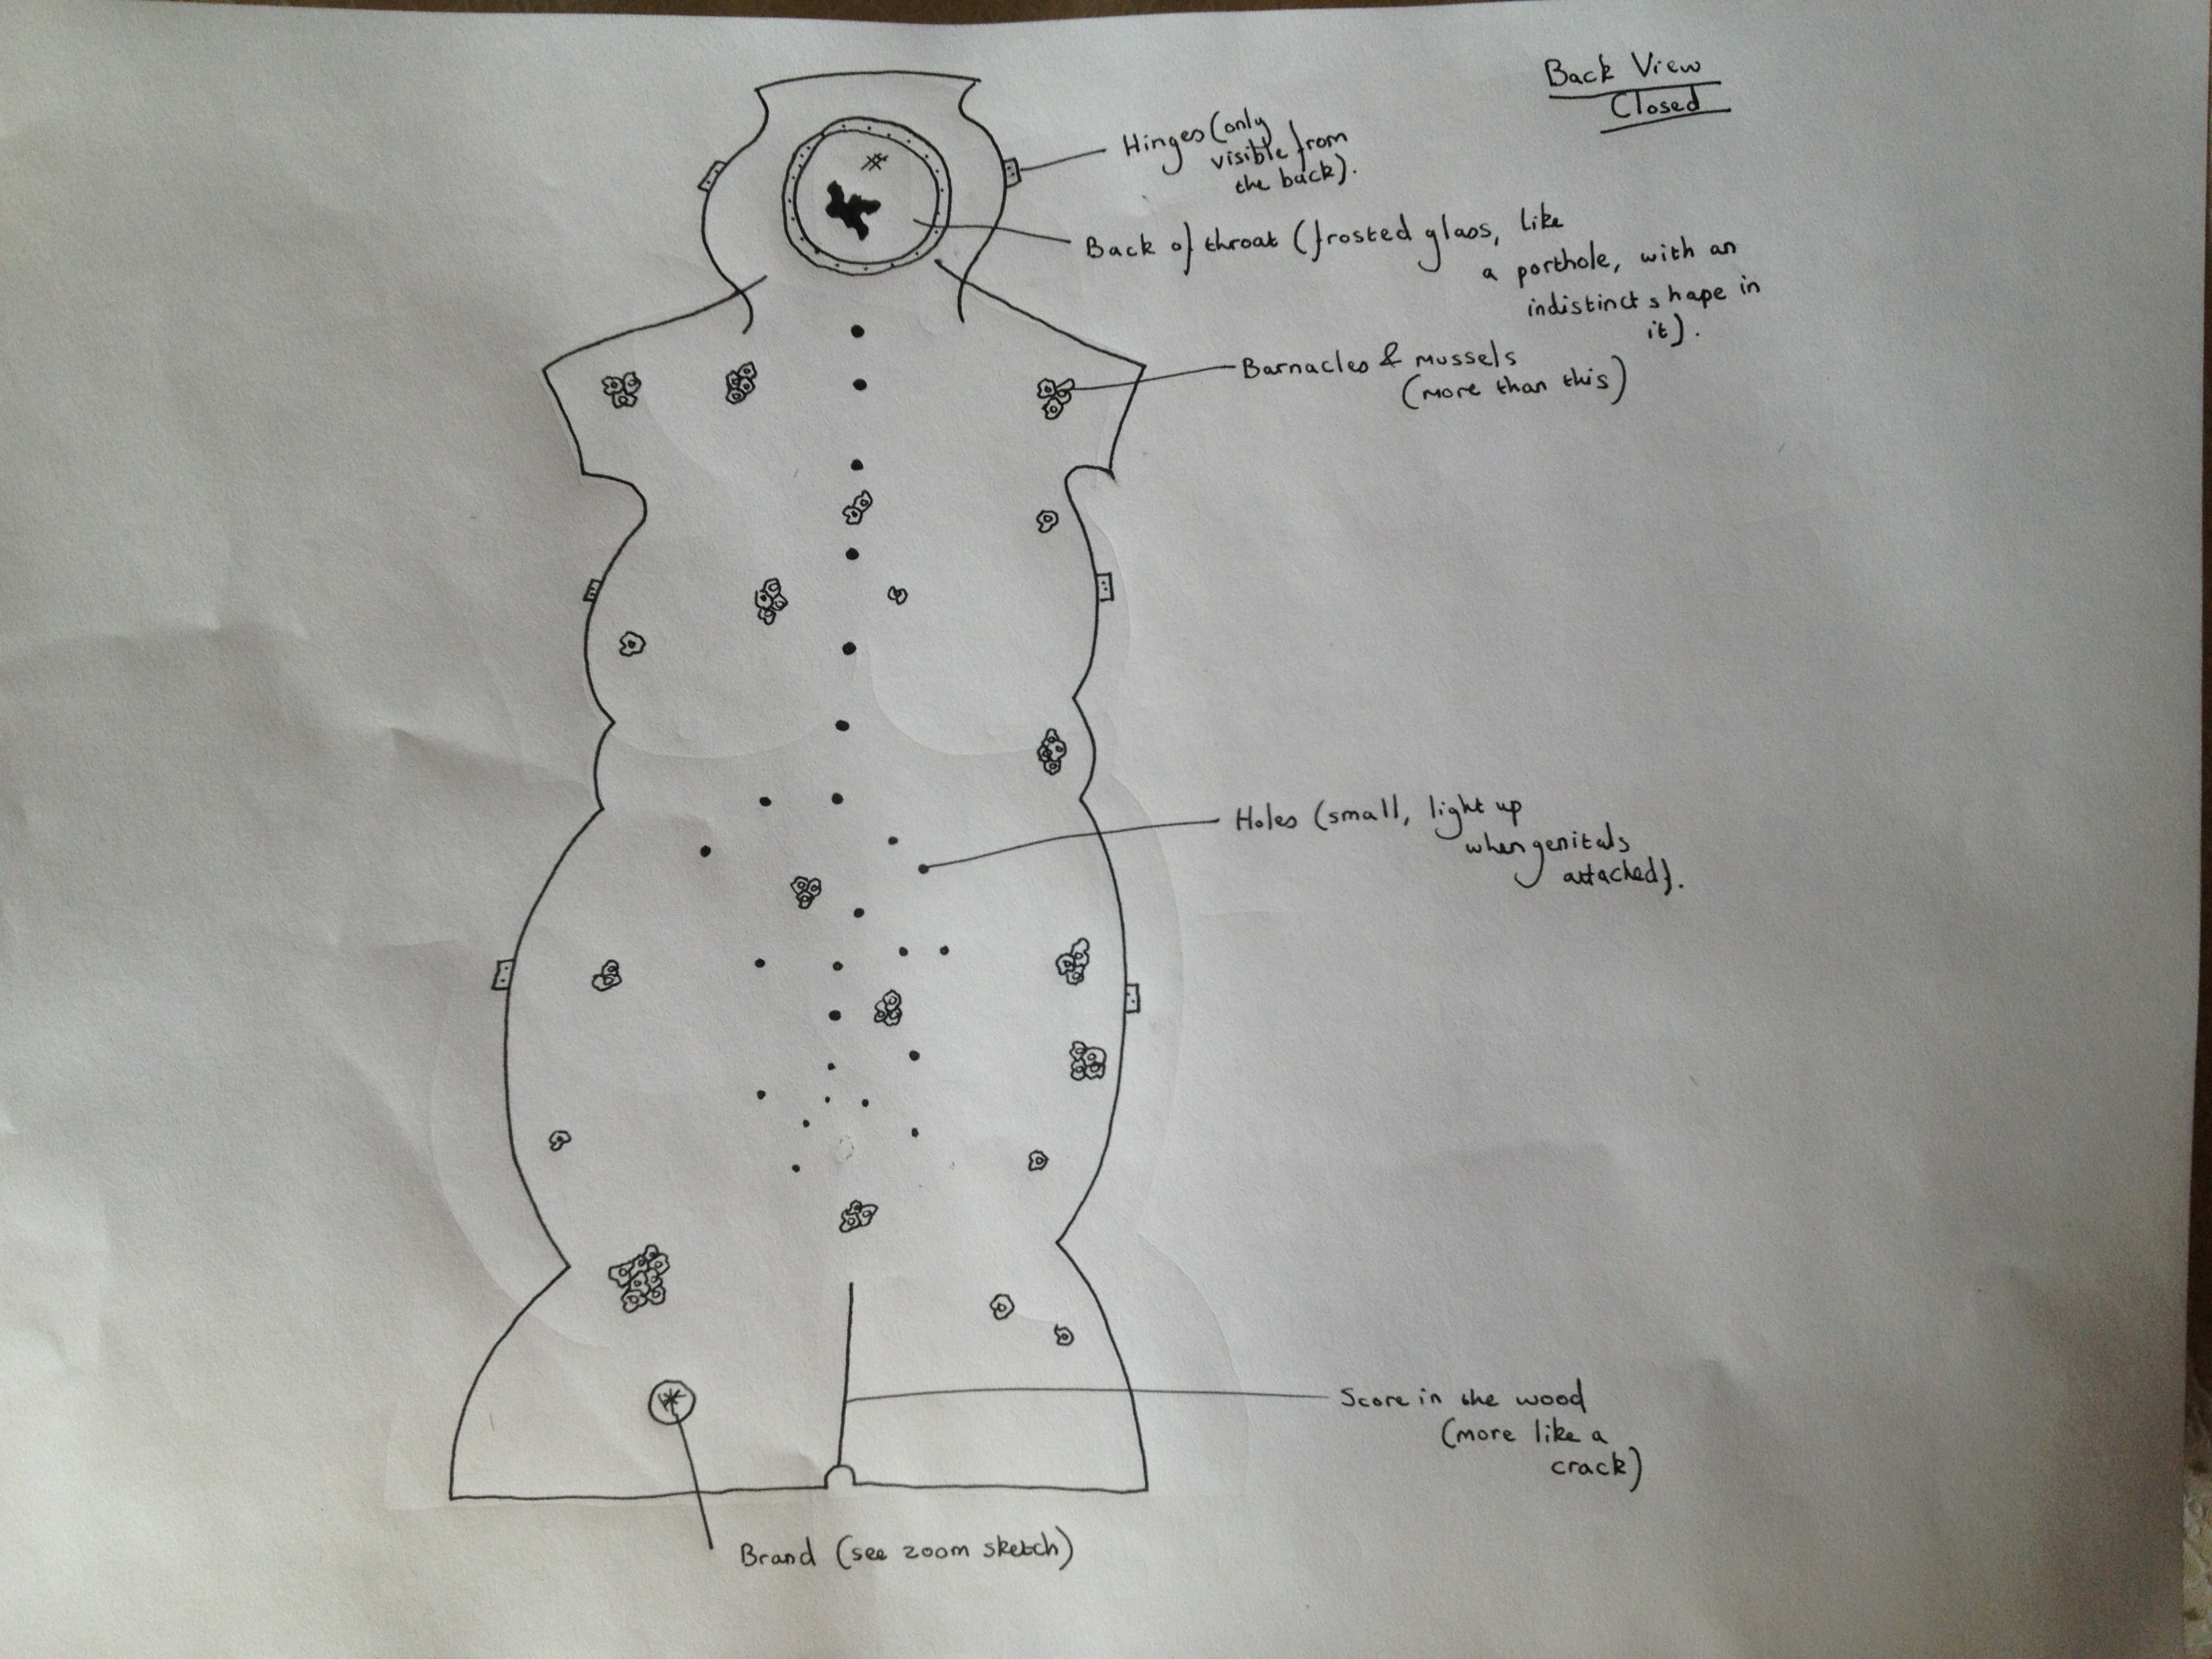 Back View
Closed
Hinges (only
visible from
the back).
Back of throat (frosted glass, like
a porthole, with an
indistinct shape in
it).
Barnacles & mussels
(more than this)
Holes (small, light up
when genitals
attached).
Score in the wood
(more like a
crack)
Brand (see zoom sketch)